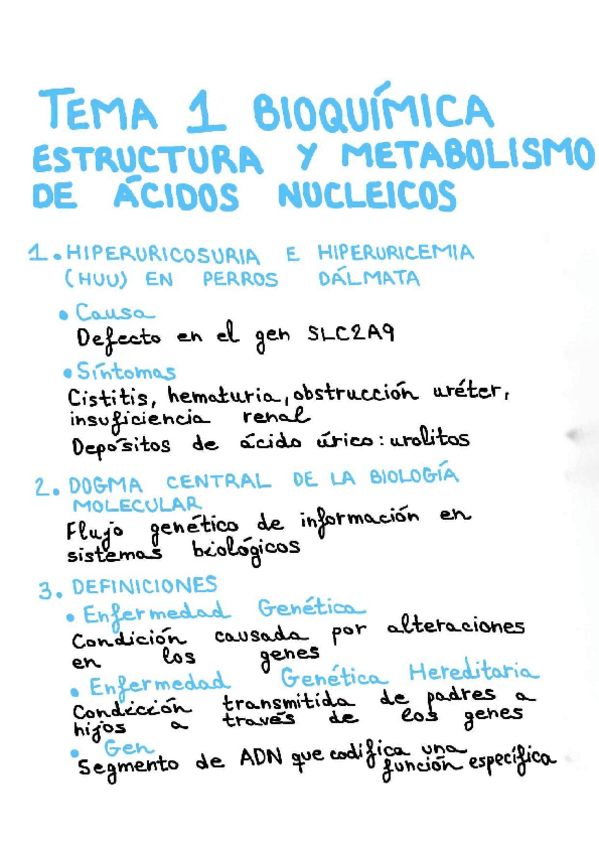 TEMA 1 BIOQUÍMICA
ESTRUCTURA Y METABOLISMO
DE ÁCIDOS NUCLEICOS
1. HIPERURICOSURIA E HIPERURICEMIA
(HUU) EN PERROS DÁLMATA
• Causa
Defecto en el gen SLC2A9
• Síntomas
Cistitis, hematuria, obstrucción uréter,
insuficiencia renal
Depósitos de ácido úrico: urolitos
2. DOGMA CENTRAL DE LA BIOLOGÍA
MOLECULAR
Flujo genético de información en
sistemas biológicos
3. DEFINICIONES
• Enfermedad Genética
Condición causada por alteraciones
en los genes
• Enfermedad Genética Hereditaria
Condición transmitida de padres a
hijos a través de los genes
• Gen
Segmento de ADN que codifica una
función específica